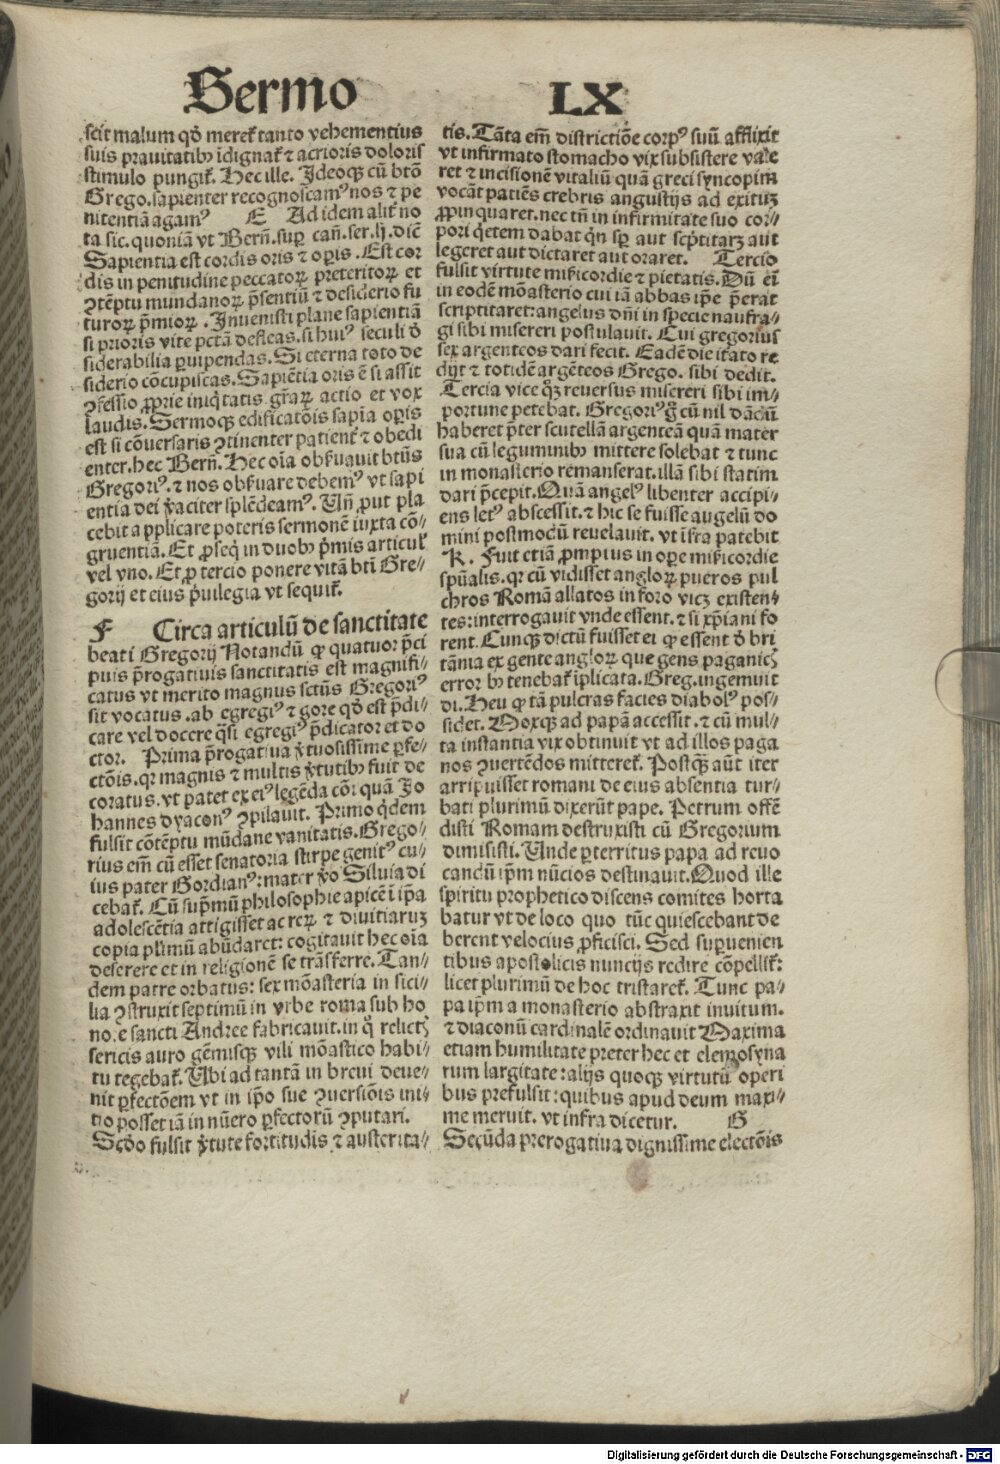 Sermo LX
scit malum qđ meret᷑ tanto vehementius
suis prauitatibꝰ īdignat᷑ ⁊ acrioris doloris
stimulo pungit᷑. Hec ille. Ideoqꝫ cū btō
Grego. sapienter recognoscamꝰ nos ⁊ pe
nitentiā agamꝰ E Ad idem alit᷑ no
ta sic. quoniā vt Berñ. suꝑ cañ. ser. lj. diē
Sapientia est cordis oris ⁊ oꝑis. Est cor
dis in penitudine peccatoꝝ preteritoꝝ et
ꝯtēptu mundanoꝝ p̄sentiū ⁊ desiderio fu
turoꝝ p̄mioꝝ. Inuenisti plane sapientiā
si prioris vite pctā defleas. si huiꝰ seculi ď
siderabilia ꝑuipendas. Si eterna toto de
siderio cōcupiscas. Sapiētia oris ē si assit
ꝯfessio ꝓprie iniq̇tatis gr̄aꝝ actio et vox
laudis. Sermoqꝫ edificatōis sapīa oꝑis
est si cōuersaris ꝯtinenter patient᷑ ⁊ obedi
enter. hec Berñ. Hec oīa obẜuauit btūs
Gregoriꝰ. ⁊ nos obẜuare debemꝰ vt sapi
entia dei v̓aciter splēdeamꝰ. Uñ ꝓut pla
cebit applicare poteris sermonē iuxta cō-
gruentiā. Et ꝓseq̇ in duobꝰ p̓mis articul᷑
vel vno. Et ꝓ tercio ponere vitā bt̄i Gre-
gorij et eius p̓uilegia vt sequit᷑.
F Circa articulū de sanctitate
beati Gregorij Notandū ꝙ quatuor p̓nci
puis p̄rogatiuis sanctitatis est magnifi-
catus vt merito magnus sctūs Gregoriꝰ
sit vocatus. ab egregiꝰ ⁊ gore qđ est p̄di-
care vel docere q̄si egregiꝰ p̄dicator et do
ctor. Prima p̄rogatiua v̓tuosissime ꝑfe-
ctōis. qr magnis ⁊ multis v̓tutibꝰ fuit de
coratus. vt patet ex eiꝰ legēda cōi quā Jo
hannes dyaconꝰ ꝯpilauit. Primo q̇dem
fulsit cōtēptu mūdane vanitatis. Grego-
rius em̄ cū esset senatoria stirpe genitꝰ cu-
ius pater Gordianꝰ: mater v̓o Siluia di
cebat᷑. Cū supᷓmū philosophie apicē ī ip̄a
adolescētia attigisset ac reꝝ ⁊ diuitiarꝫ
copia pl̓imū abūdaret: cogitauit hec oīa
deserere et in religionē se trāsferre. Tan-
dem patre orbatus: sex mōasteria in sici-
lia ꝯstruxit septimū in vrbe roma sub ho
no. e sancti Andree fabricauit. in q̊ relictꝭ
sericis auro gēmisqꝫ vili mōastico habi-
tu tegebat᷑. Ubi ad tantā in breui deue-
nit ꝑfectōem vt in ip̄o sue ꝯuersiōis ini-
tio posset iā in nūero ꝑfectorū ꝯputari.
Scđo fulsit v̓tute fortitudis ⁊ austerita-
tis. Tāta em̄ districtiōe corpꝰ suū afflixit
vt infirmato stomacho vix subsistere vale
ret ⁊ incisionē vitaliū quā greci syncopim
vocāt patiēs crebris angustijs ad exitūꝫ
ꝓpinquaret. nec tn̄ in infirmitate suo cor-
pori q̇etem dabat q̇n sꝑ aut sc̄ptitarꝫ aut
legeret aut dictaret aut oraret. Tercio
fulsit virtute mīcordie ⁊ pietatis. Dū ei
in eodē mōasterio cui iā abbas ip̄e p̄erat
scriptitaret: angelus dn̄i in specie naufra-
gi sibi misereri postulauit. Cui gregorius
sex argenteos dari fecit. Eadē die itato re
dijt ⁊ totidē argēteos Grego. sibi dedit.
Tercia vice qꝫ reuersus misereri sibi im-
portune petebat. Gregoriꝰ g̊ cū nil dādū
haberet p̄ter scutellā argenteā quā mater
sua cū leguminibꝰ mittere solebat ⁊ tunc
in monasterio remanserat. illā sibi statim
dari p̄cepit. Quā angelꝰ libenter accipi-
ens letꝰ abscessit. ⁊ hic se fuisse augelū do
mini postmodū reuelauit. vt īfra patebit
K. Fuit etiā ꝓmpius in oꝑe mīcordie
spūalis. qr cū vidisset angloꝝ pueros pul
chros Romā allatos in foro vicꝫ existen-
tes: interrogauit vnde essent. ⁊ si xp̄iani fo
rent. Cunqꝫ dictū fuisset ei ꝙ essent ď bri
tānia ex gente angloꝝ que gens paganicꝭ
error bꝰ tenebat᷑ īplicata. Greg. ingemuit
di. Heu ꝙ tā pulcras facies diabolꝰ pos-
sidet. Moxqꝫ ad papā accessit. ⁊ cū mul-
ta instantia vix obtinuit vt ad illos paga
nos ꝯuertēdos mitteret᷑. Postqꝫ aūt iter
arripuisset romani de eius absentia tur-
bati plurimū dixerūt pape. Petrum offē
disti Romam destruxisti cū Gregorium
dimisisti. Unde ꝑterritus papa ad reuo
candū ip̄m nūcios destinauit. Quod ille
spiritu prophetico discens comites horta
batur vt de loco quo tūc quiescebant de
berent velocius ꝓficisci. Sed suꝑuenien
tibus apostolicis nuncijs redire cōpellit᷑:
licet plurimū de hoc tristaret᷑. Tunc pa-
pa ip̄m a monasterio abstraxit inuitum.
⁊ diaconū cardinalē ordinauit Maxima
etiam humilitate preter hec et elemosyna
rum largitate: alijs quoqꝫ virtutū operi
bus prefulsit: quibus apud deum maxi-
me meruit. vt infra dicetur. G
Secūda prerogatiua dignissime electōis
Digitalisierung gefördert durch die Deutsche Forschungsgemeinschaft - DFG